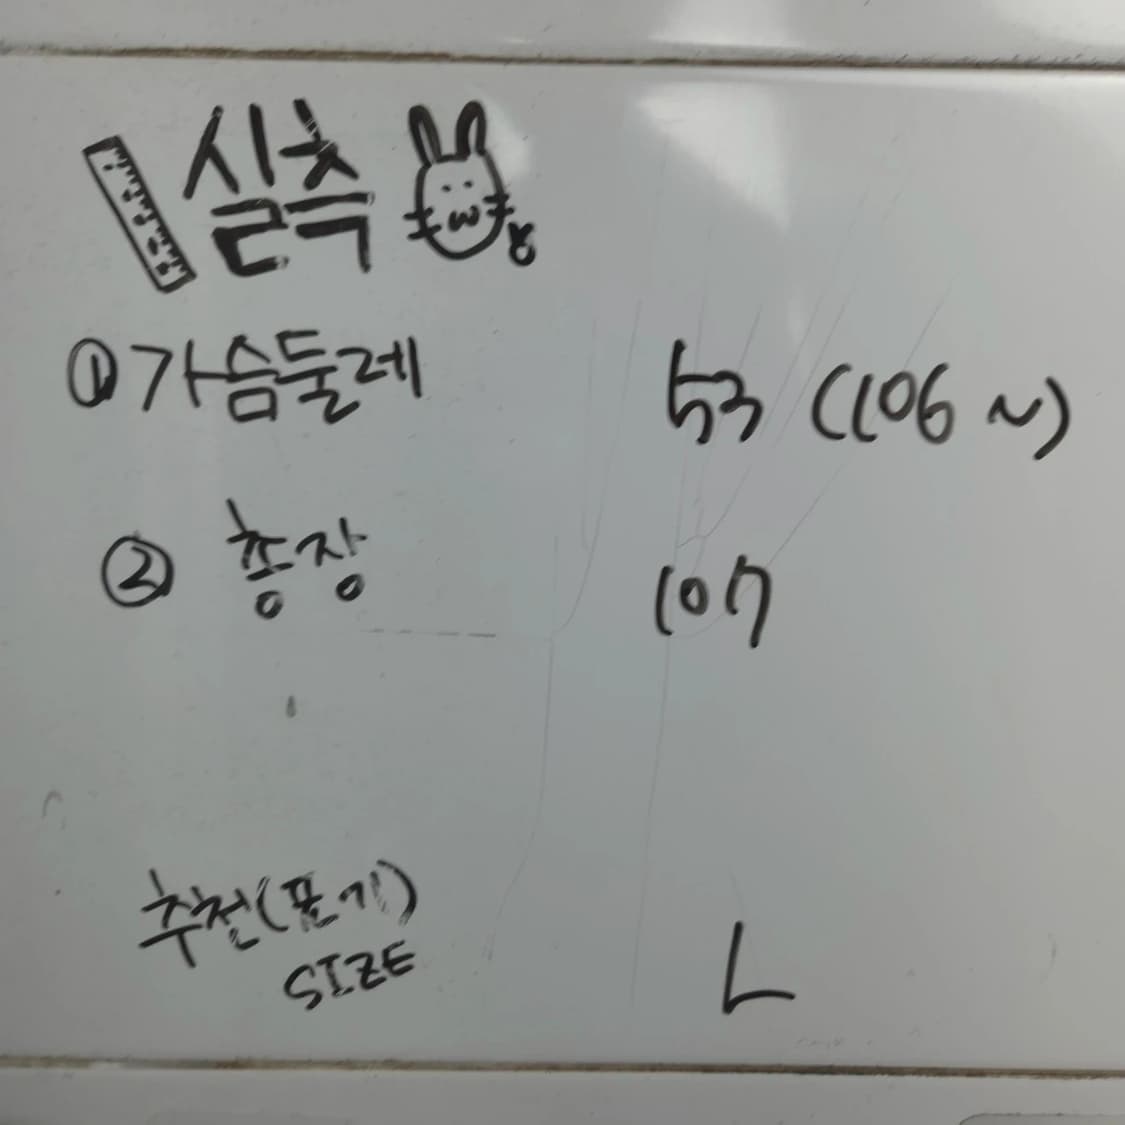 실측
①가슴둘레 53 (106 ~)
② 총장 107
추천(표기) L
SIZE